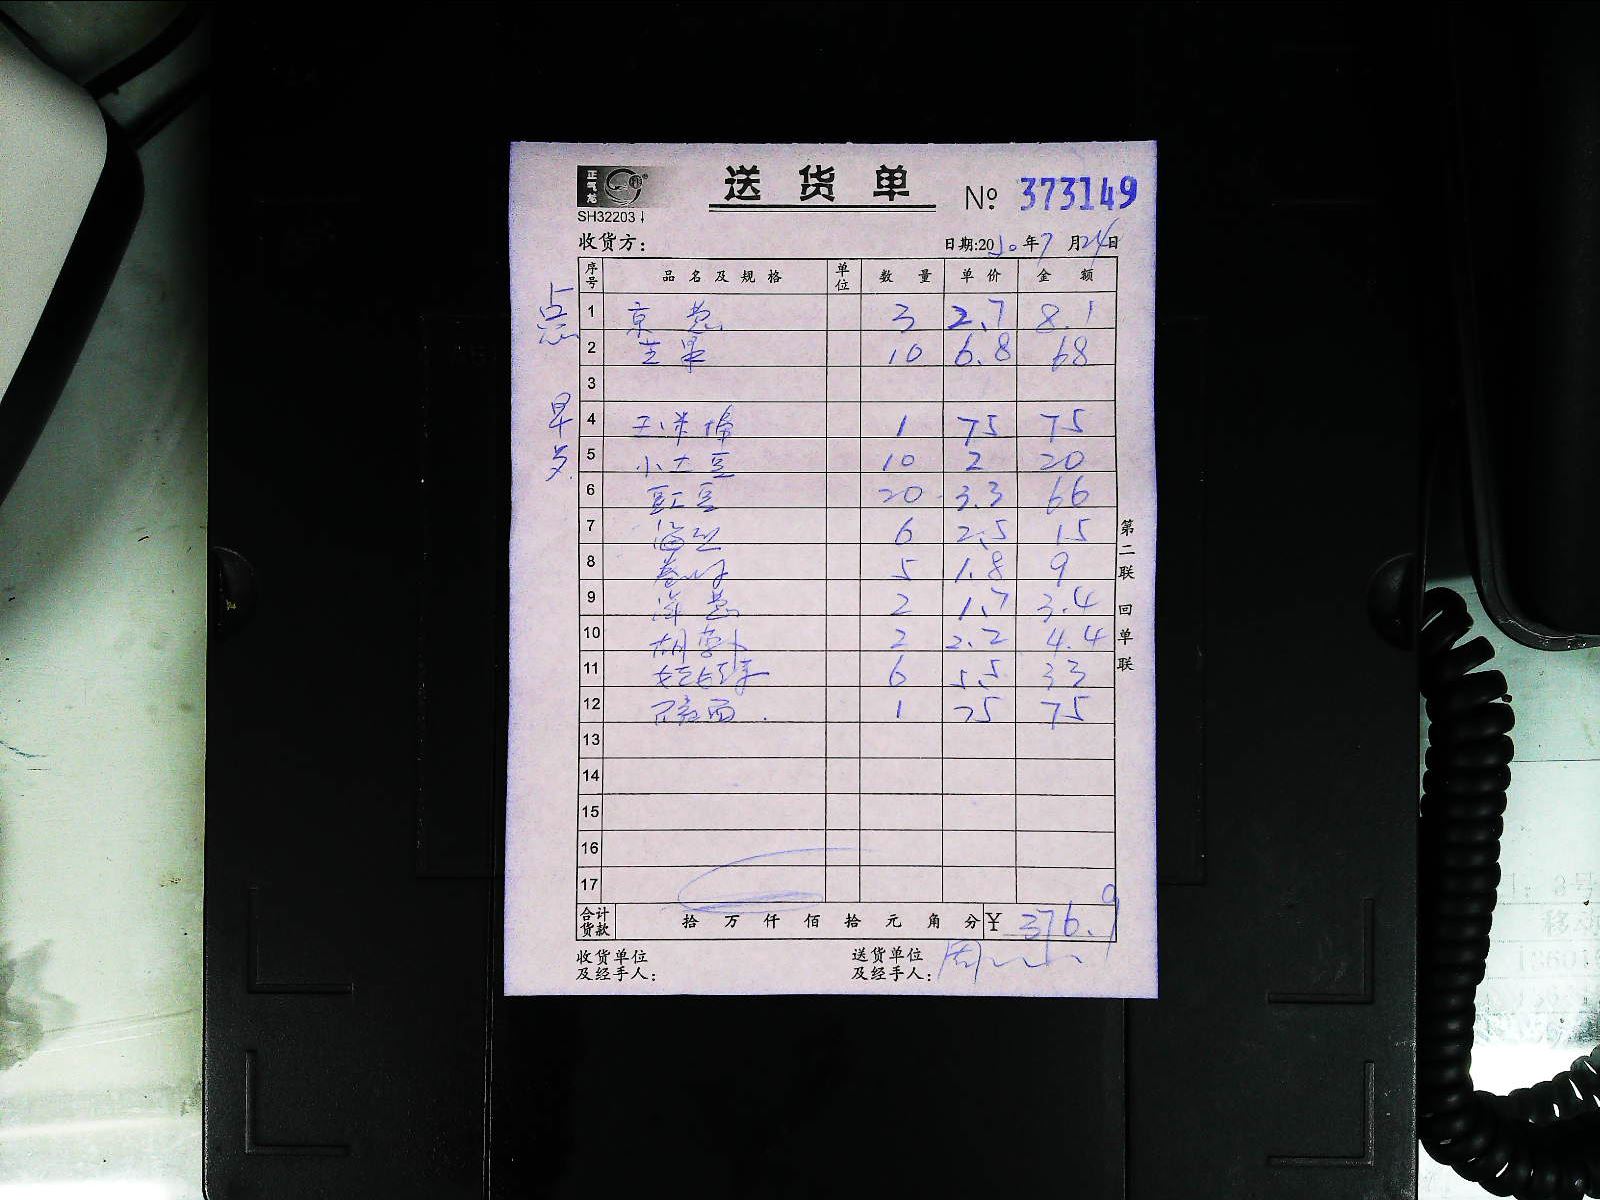 正气龙
送货单 № 373149
SH32203
收货方: 日期:2010年7月24日
序号 品名及规格 单位 数量 单价 金额
点心
1 京葱 3 2.7 8.1
2 芒果 10 6.8 68
3
早歺
4 玉米棒 1 75 75
5 小土豆 10 2 20
6 豇豆 20 3.3 66
7 6 2.5 15
8 5 1.8 9
9 洋葱 2 1.7 3.4
10 胡萝卜 2 2.2 4.4
11 娃娃菜 6 5.5 33
12 面 1 75 75
13
14
15
16
17
第二联 回单联
合计货款 拾万仟佰拾元角分 ¥ 376.9
收货单位及经手人: 送货单位及经手人: 周